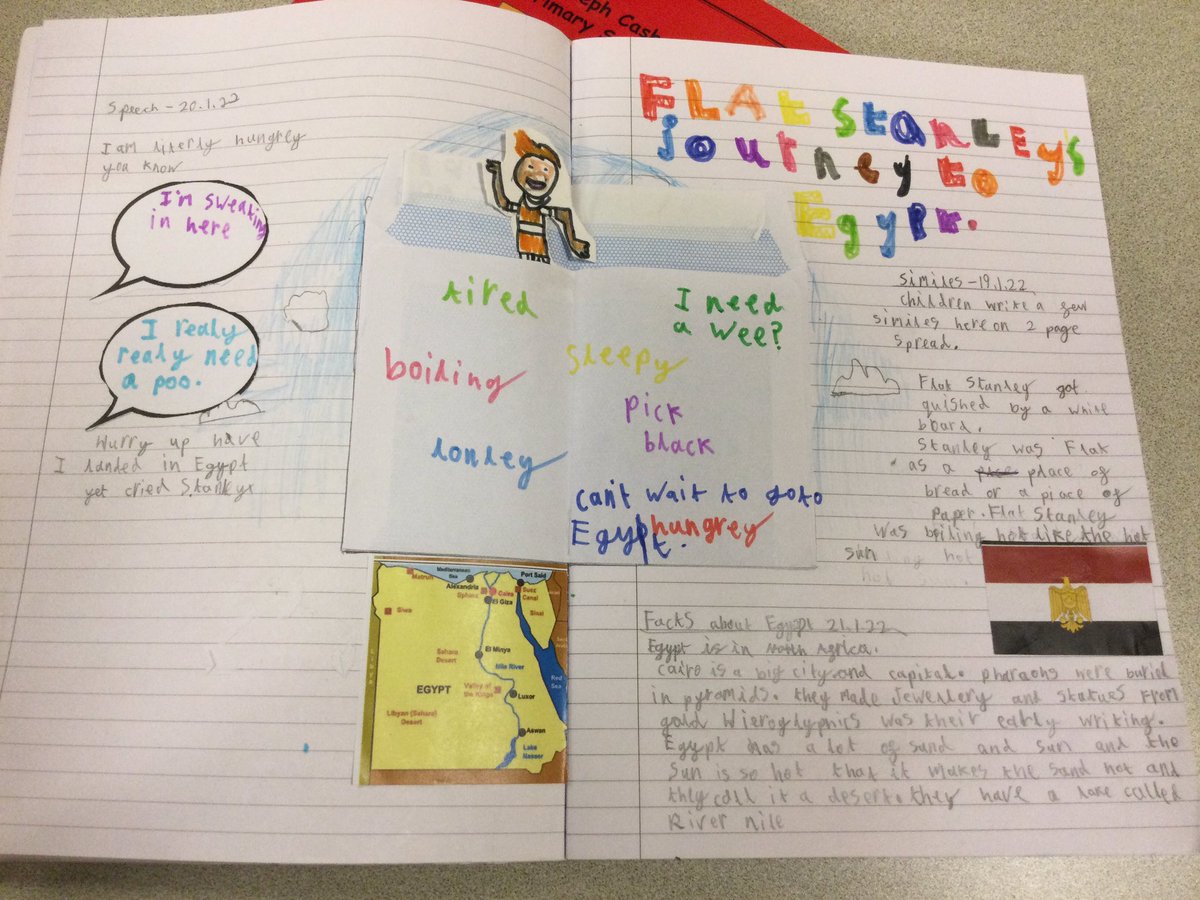 eph Cash
rimary S
Speech - 20.1.22
I am literly hungrey
you know
I'm sweating
in here
I realy
realy need
a poo.
Hurry up have
I landed in Egypt
yet cried Stanley
FLAt StanLEy's
journey to
Egypt.
tired
I need
a wee?
boiling
sleepy
pick
black
lonley
can't wait to go to
Egypt.
hungrey
similes - 19.1.22
children write a few
similes here on 2 page
spread.
Flat Stanley got
quished by a white
board.
Stanley was Flat
as a place of
bread or a piace of
paper. Flat Stanley
was boiling hot like the hot
sun
Mediterranean
Sea
Port Said
Matruh
Alexandria
Sphinx
Cairo
Suez
Canal
El Giza
Sinai
Siwa
Sahara
Desert
El Minya
Nile River
Red
Sea
EGYPT
Valley of
the Kings
Luxor
Libyan (Sahara)
Desert
Aswan
Lake
Nasser
Facts about Egypt 21.1.22
Egypt is in North Africa.
Cairo is a big city and capital. pharaohs were buried
in pyramids. they made Jewenlery and statues from
gold Hieroglyphics was their early writing.
Egypt has a lot of sand and sun and the
sun is so hot that it makes the sand hot and
they call it a desert. they have a lake called
River nile